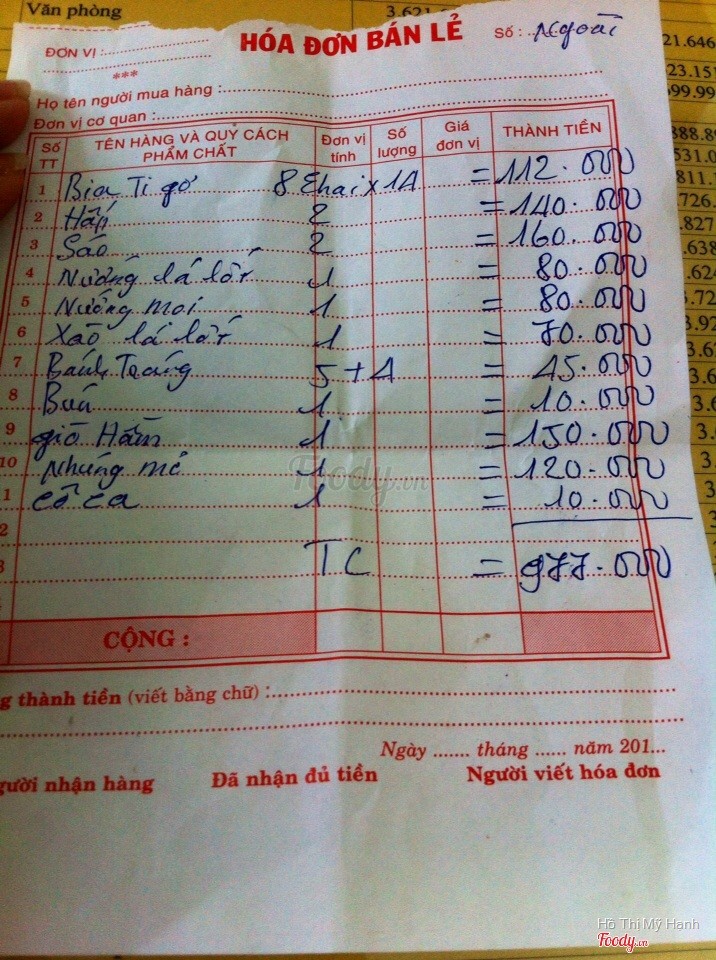 Văn phòng 3.621
ĐƠN VỊ :
HÓA ĐƠN BÁN LẺ
SỐ : Ngoài
***
Họ tên người mua hàng :
Đơn vị cơ quan :
Số TT TÊN HÀNG VÀ QUY CÁCH PHẨM CHẤT Đơn vị tính Số lượng Giá đơn vị THÀNH TIỀN
1 Bia Ti gơ 8 Chai x 14 = 112.000
2 Hấp 2 = 140.000
3 Sáo 2 = 160.000
4 Nướng lá lốt 1 = 80.000
5 Nướng moi 1 = 80.000
6 Xào lá lốt 1 = 70.000
7 Bánh Tráng 5 + 4 = 45.000
8 Bún 1 = 10.000
9 giò Hầm 1 = 150.000
10 Nhúng mẻ 1 = 120.000
1 cô ca 1 = 10.000
2
3 TC = 977.000
CỘNG :
g thành tiền (viết bằng chữ) :
Ngày ....... tháng ...... năm 201...
gười nhận hàng Đã nhận đủ tiền Người viết hóa đơn
21.646
23.151
699.99
888.89
531.0
811.
726.
.827
.638
.624
3.72
3.92
3.6
Foody.vn
Hồ Thị Mỹ Hạnh
Foody.vn